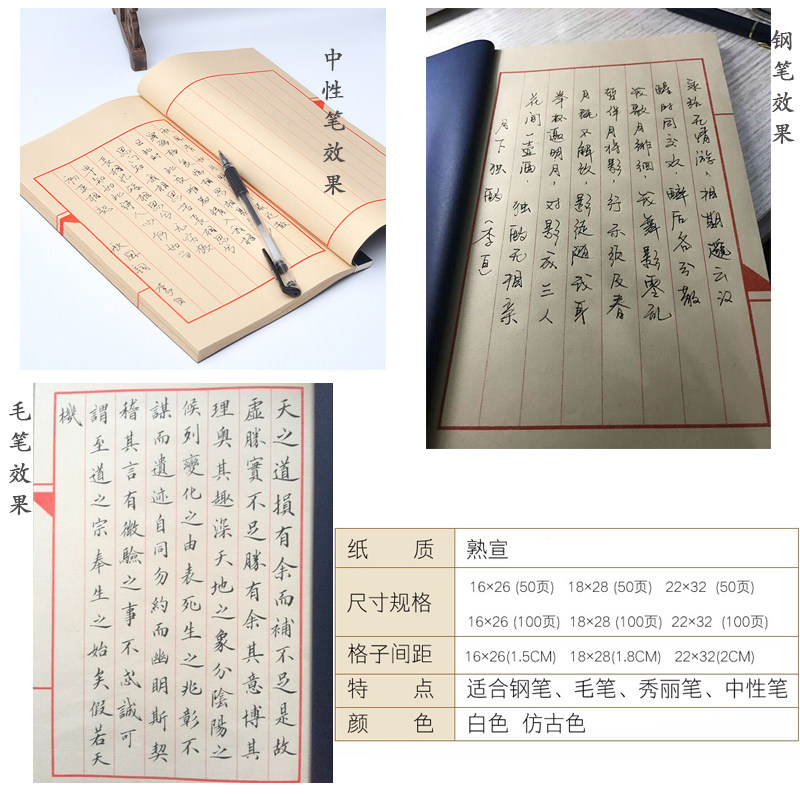 中性笔效果
钢笔效果
月下独酌 李白
花间一壶酒,独酌无相亲
举杯邀明月,对影成三人
月既不解饮,影徒随我身
暂伴月将影,行乐须及春
我歌月徘徊 我舞影零乱
醒时同交欢,醉后各分散
永结无情游,相期邈云汉
毛笔效果
天之道損有余而補不足是故
虛勝實不足勝有余其意博其
理奥其趣深天地之象分陰陽之
候列變化之由表死生之兆彰不
謀而遺迹自同勿約而幽明斯契
稽其言有微驗之事不忒誠可
謂至道之宗奉生之始矣假若天
機
纸 质 熟宣
尺寸规格 16×26 (50页) 18×28 (50页) 22×32 (50页)
16×26 (100页) 18×28 (100页) 22×32 (100页)
格子间距 16×26(1.5CM) 18×28(1.8CM) 22×32(2CM)
特 点 适合钢笔、毛笔、秀丽笔、中性笔
颜 色 白色 仿古色